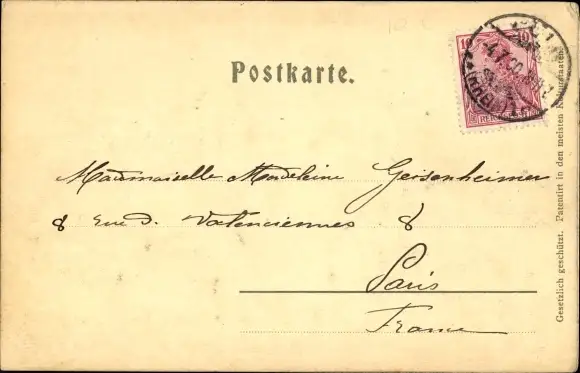 Postkarte.
10 10
4.7.00
Mademoiselle Madeleine Geisenheimer
8 rue d. Valenciennes 8
Paris
France
Gesetzlich geschützt. Patentirt in den meisten Kulturstaaten.